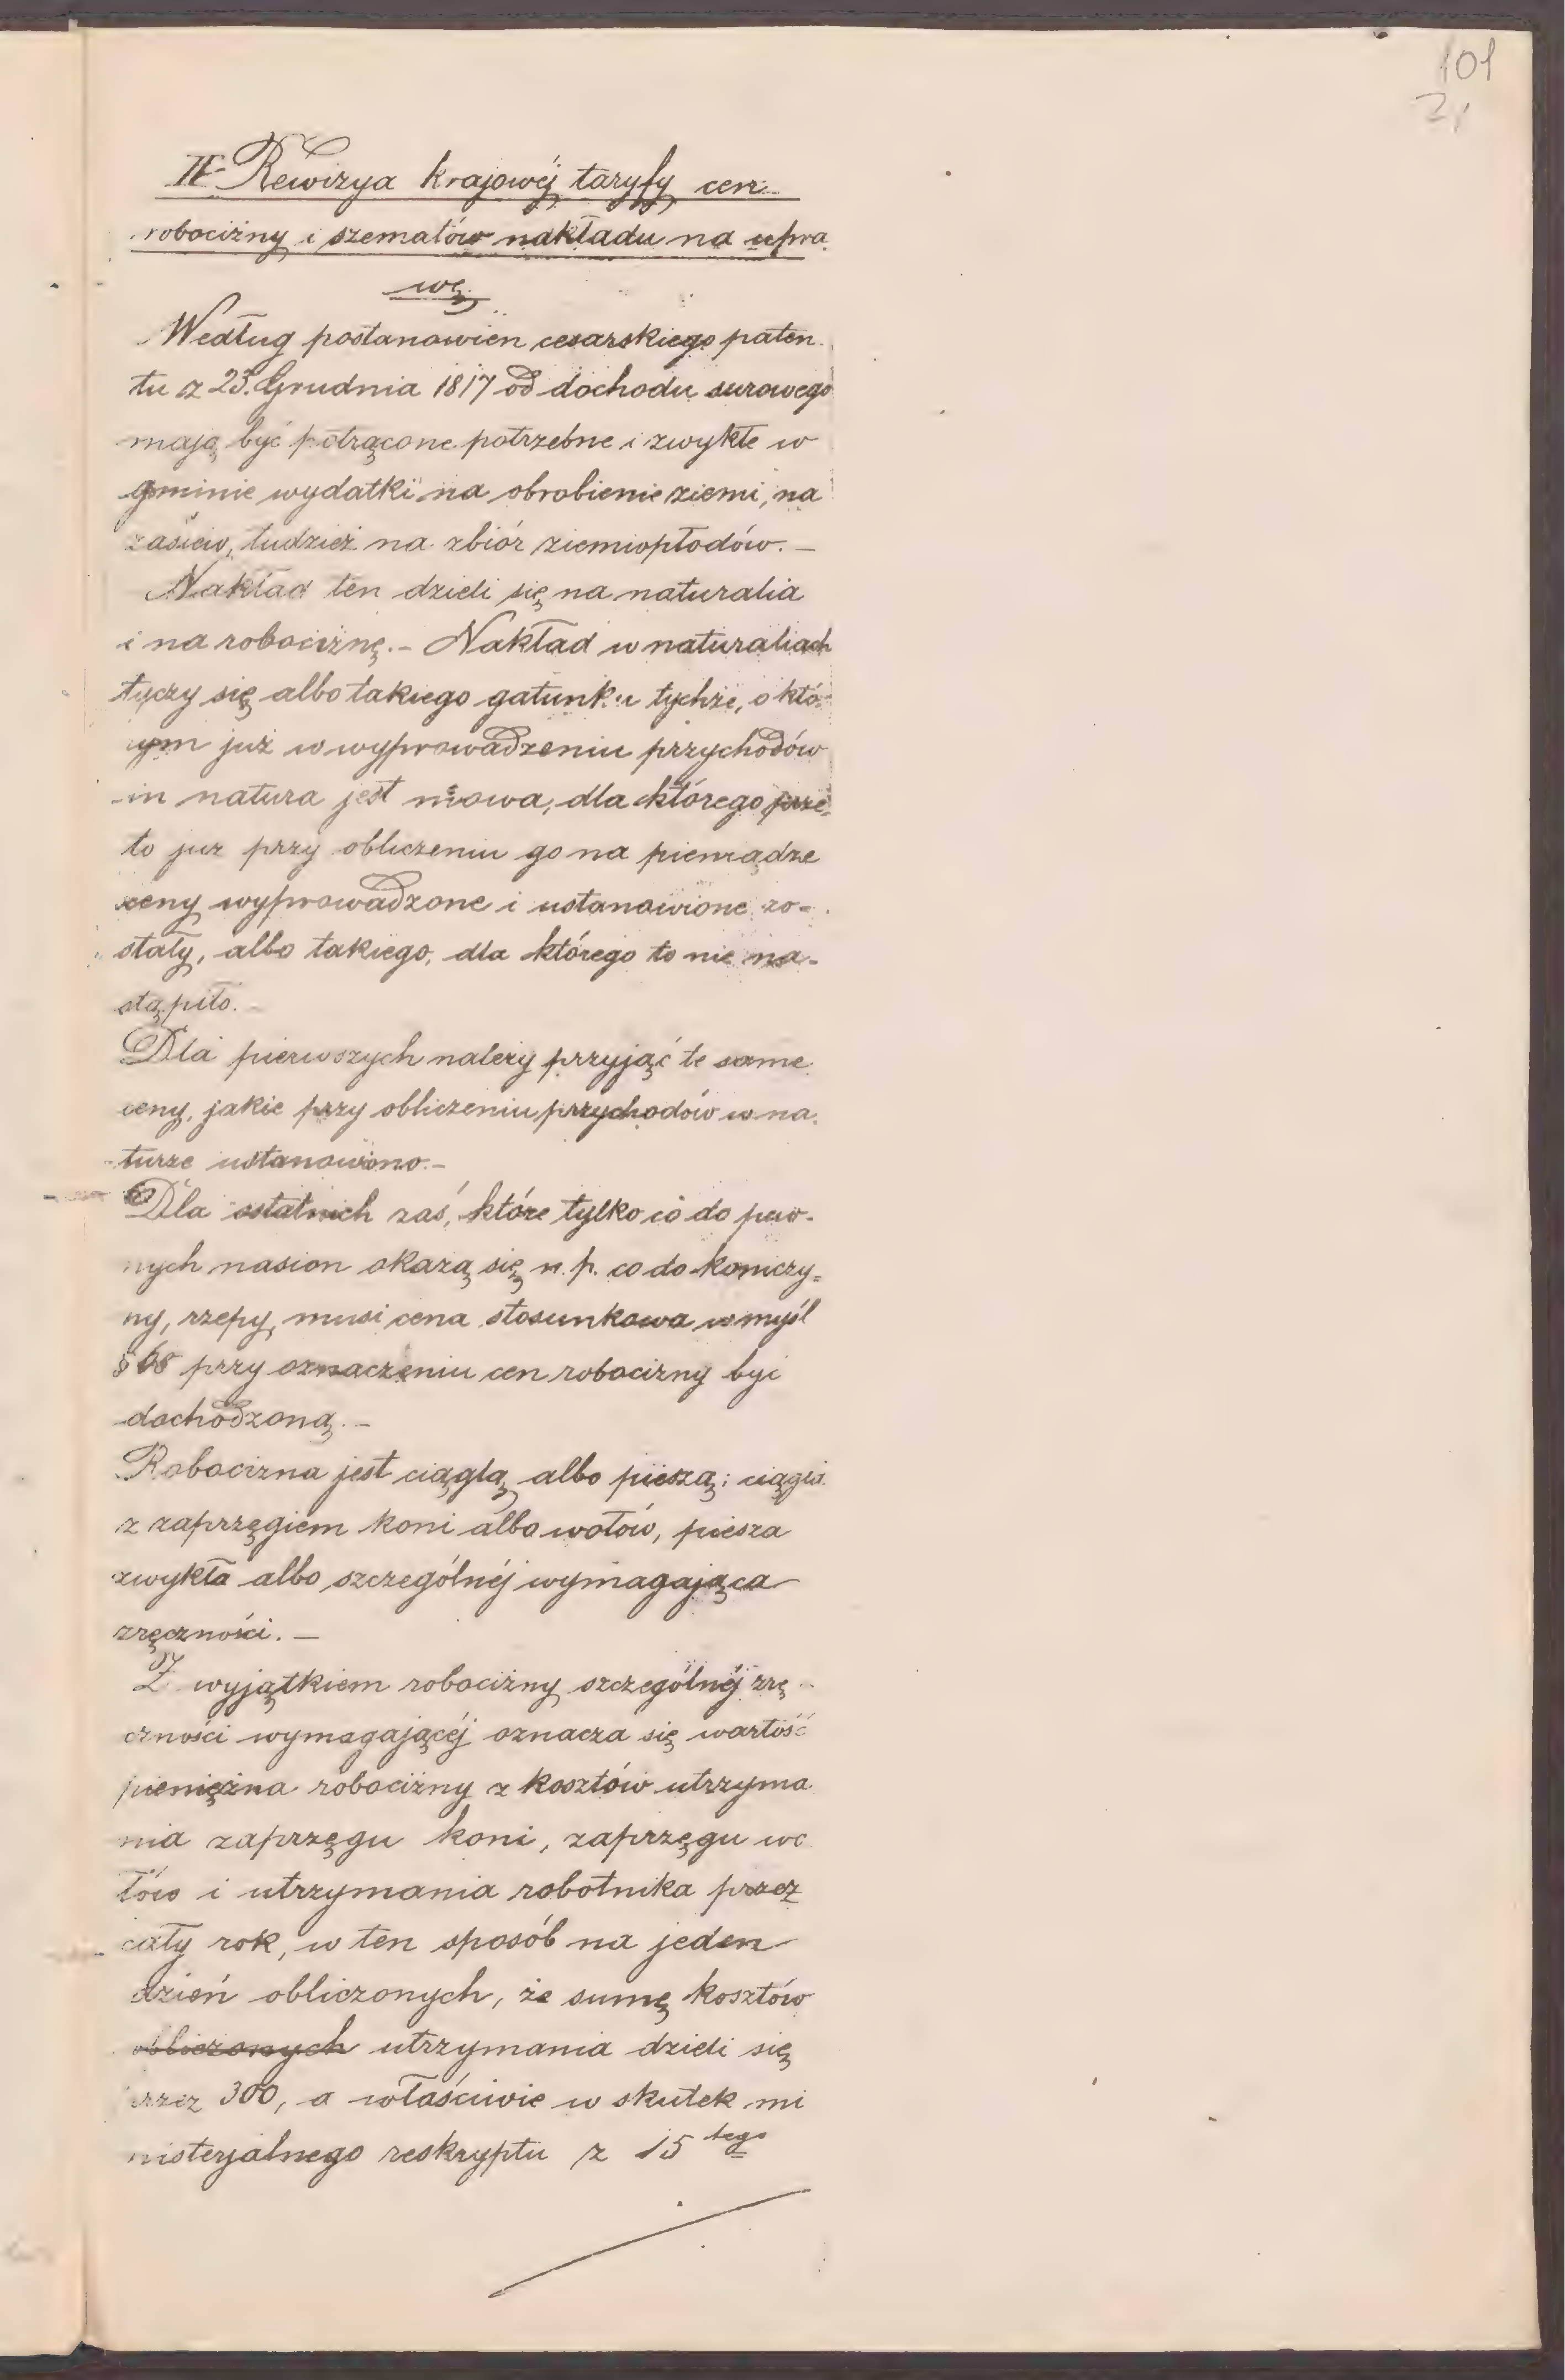 101
21
II Rewizya krajowéj taryfy cen
robocizny i szematów nakładu na upra
wę
Według postanowien cesarskiego paten
tu z 23. Grudnia 1817 od dochodu surowego
mają być potrącone potrzebne i zwykłe w
gminie wydatki na obrobienie ziemi, na
zasiew, tudzież na zbiór ziemiopłodów. –
Nakład ten dzieli się na naturalia
i na robociznę. – Nakład w naturaliach
tyczy się albo takiego gatunku tychże, o któ-
rym już w wyprowadzeniu przychodów
in natura jest mowa, dla którego prze-
to już przy obliczeniu go na pieniądze
ceny wyprowadzone i ustanowione zo-
stały, albo takiego, dla którego to nie na-
stąpiło. –
Dla pierwszych należy przyjąć te same
ceny, jakie przy obliczeniu przychodów w na
turze ustanowiono. –
Dla ostatnich zaś, które tylko co do pew-
nych nasion okażą się n. p. co do koniczy-
ny, rzepy, musi cena stosunkowa w myśl
§ 68 przy oznaczeniu cen robocizny być
dochodzoną. –
Robocizna jest ciągłą albo pieszą; ciągła
z zaprzęgiem koni albo wołów, piesza
zwykła albo szczególnéj wymagająca
zręczności. –
Z wyjątkiem robocizny szczególnéj zrę-
czności wymagającéj oznacza się wartość
pieniężna robocizny z kosztów utrzyma
nia zaprzęgu koni, zaprzęgu wo
łów i utrzymania robotnika przez
cały rok, w ten sposób na jeden
dzień obliczonych, że sumę kosztów
obliczonych utrzymania dzieli się
przez 300, a właściwie w skutek mi
nisterjalnego reskryptu z 15 tego